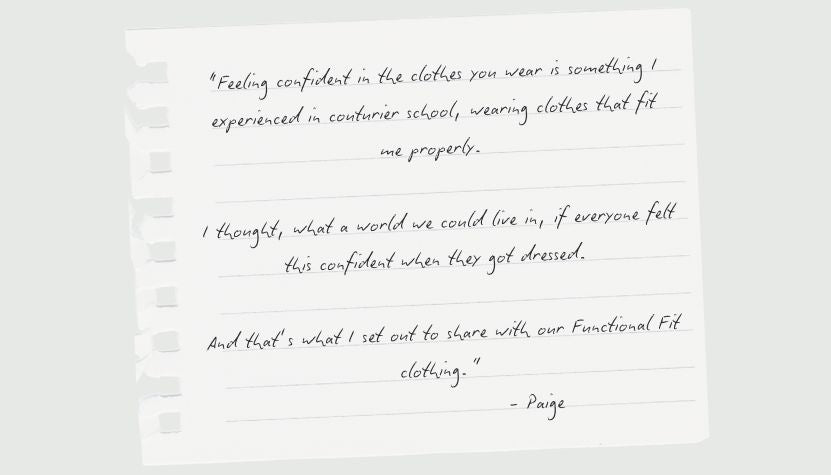 "Feeling confident in the clothes you wear is something I
experienced in couturier school, wearing clothes that fit
me properly.
I thought, what a world we could live in, if everyone felt
this confident when they got dressed.
And that's what I set out to share with our Functional Fit
clothing."
- Paige